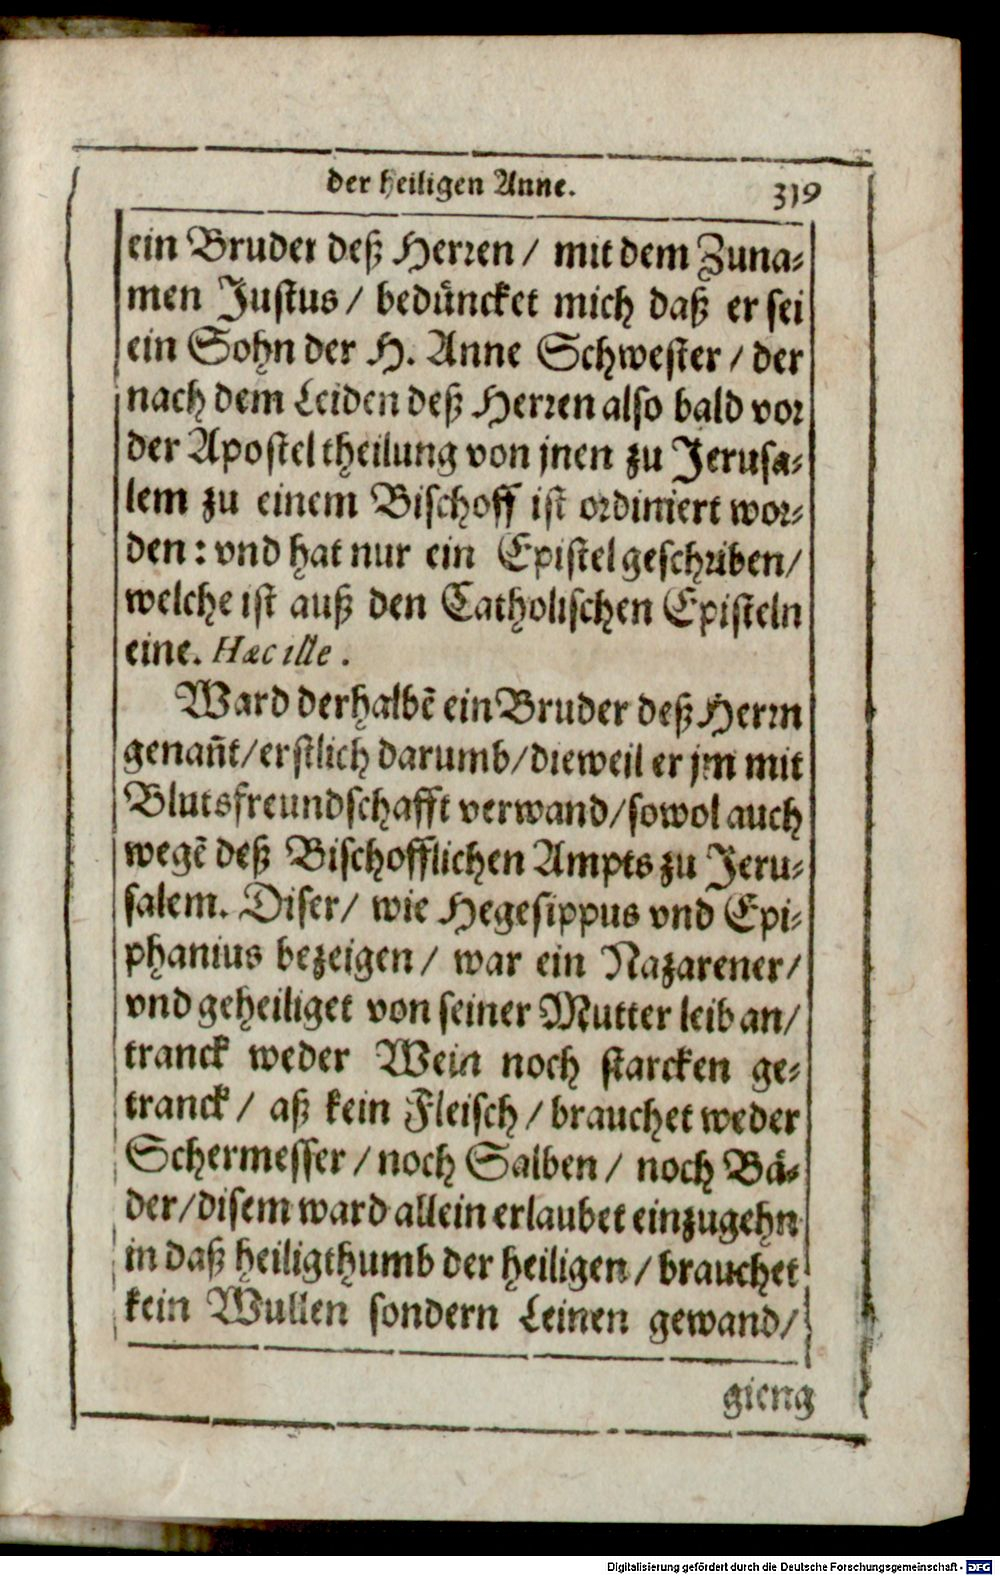 der heiligen Anne. 319
ein Bruder deß Herren / mit dem Zuna-
men Justus / bedüncket mich daß er sei
ein Sohn der H. Anne Schwester / der
nach dem Leiden deß Herren also bald vor
der Apostel theilung von jnen zu Jerusa-
lem zu einem Bischoff ist ordiniert wor-
den: vnd hat nur ein Epistel geschriben /
welche ist auß den Catholischen Episteln
eine. Hæc ille.
Ward derhalbẽ ein Bruder deß Herrn
genañt / erstlich darumb / dieweil er jm mit
Blutsfreundschafft verwand / sowol auch
wegẽ deß Bischofflichen Ampts zu Jeru-
salem. Diser / wie Hegesippus vnd Epi-
phanius bezeigen / war ein Nazarener /
vnd geheiliget von seiner Mutter leib an /
tranck weder Wein noch starcken ge-
tranck / aß kein Fleisch / brauchet weder
Schermesser / noch Salben / noch Bä-
der / disem ward allein erlaubet einzugehn
in daß heiligthumb der heiligen / brauchet
kein Wullen sondern Leinen gewand /
gieng
Digitalisierung gefördert durch die Deutsche Forschungsgemeinschaft - DFG